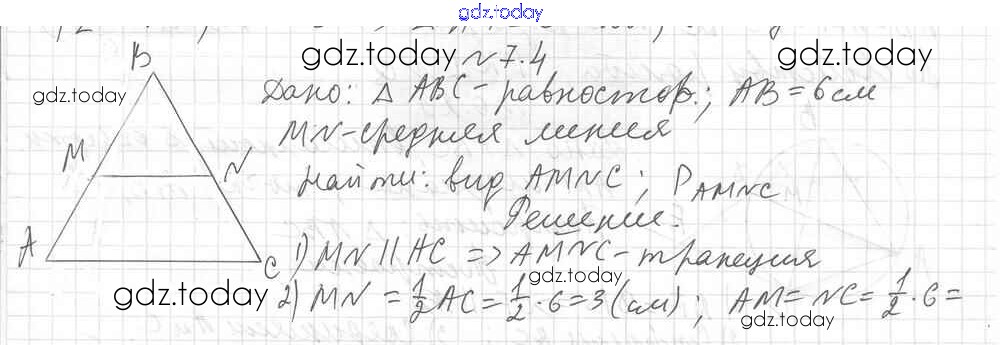 gdz.today
gdz.today № 7.4 gdz.today
B
gdz.today Дано: △ ABC - равностор.; AB = 6 см
MN - средняя линия
M N Найти: вид AMNC; P_AMNC
Решение.
A C 1) MN || AC => AMNC - трапеция
gdz.today
gdz.today 2) MN = 1/2 AC = 1/2 · 6 = 3 (см); AM = NC = 1/2 · 6 =
gdz.today